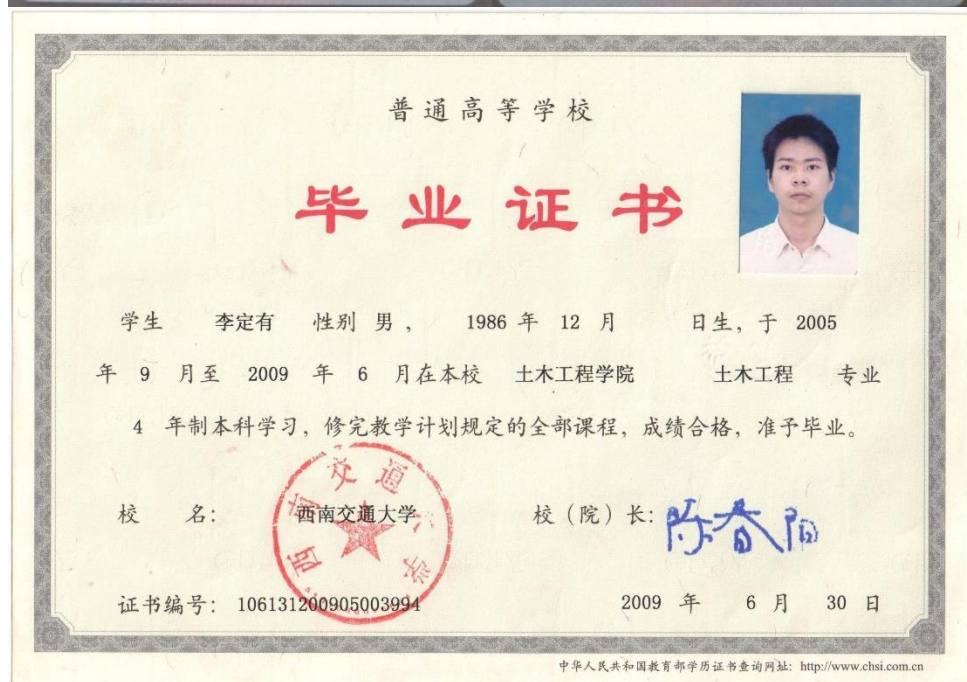 普通高等学校
毕业证书
学生 李定有 性别 男， 1986 年 12 月 日生，于 2005
年 9 月至 2009 年 6 月在本校 土木工程学院 土木工程 专业
4 年制本科学习，修完教学计划规定的全部课程，成绩合格，准予毕业。
校 名： 西南交通大学 校（院）长：陈春阳
西南交通大学
证书编号： 106131200905003994 2009 年 6 月 30 日
中华人民共和国教育部学历证书查询网址：http://www.chsi.com.cn